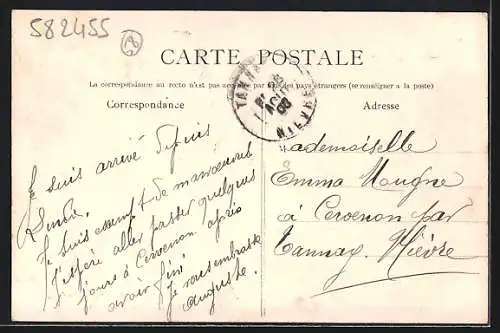 582455
68
CARTE POSTALE
La correspondance au recto n'est pas acceptée par tous les pays étrangers (se renseigner à la poste)
Correspondance
Adresse
TANNAY
AOUT
08
NIEVRE
Je suis arrivé depuis
Lundi.
Je suis exempt de manoeuvres
J'espère aller passer quelques
jours à Cervenon après
avoir fini
Je
Auguste.
Mademoiselle
Emma Mougne
à Cervenon par
Tannay. Nièvre